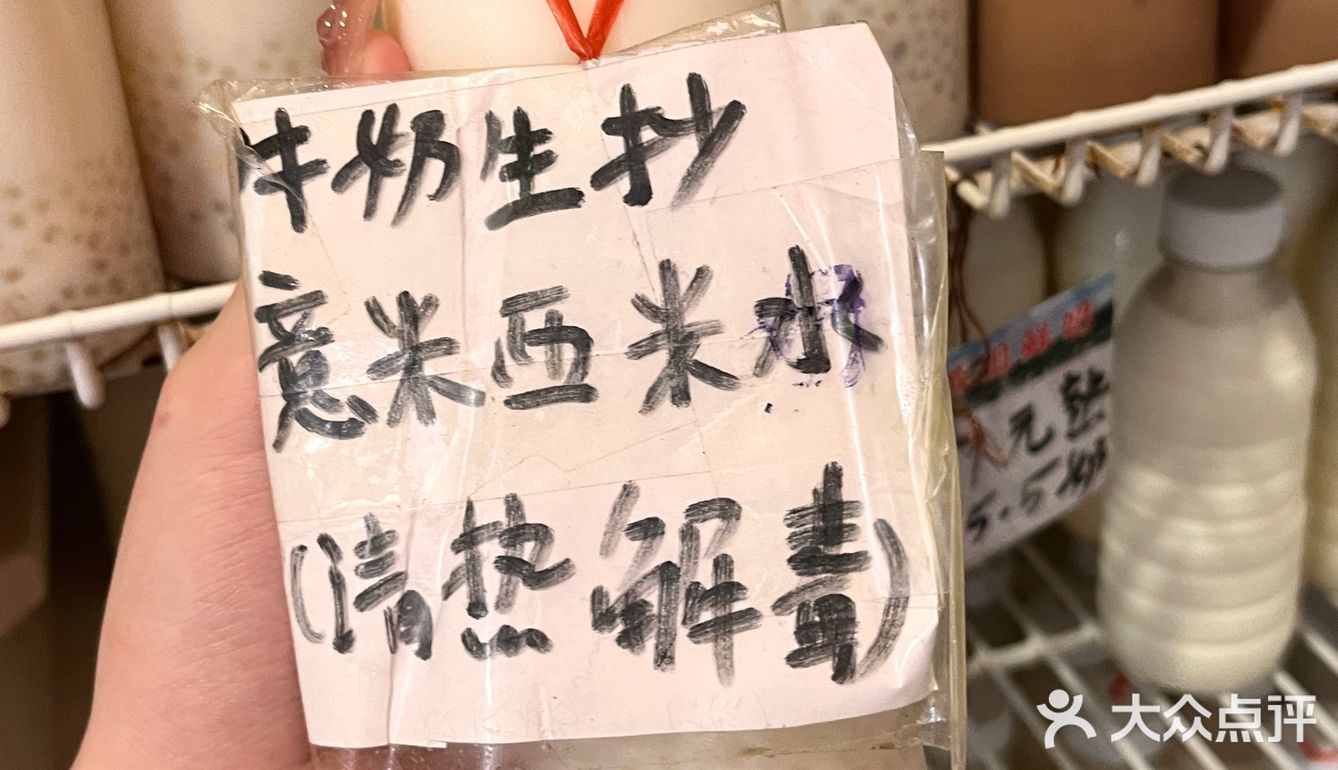 牛奶生抄
意米西米水
(清热解毒)
元
5.5
大众点评